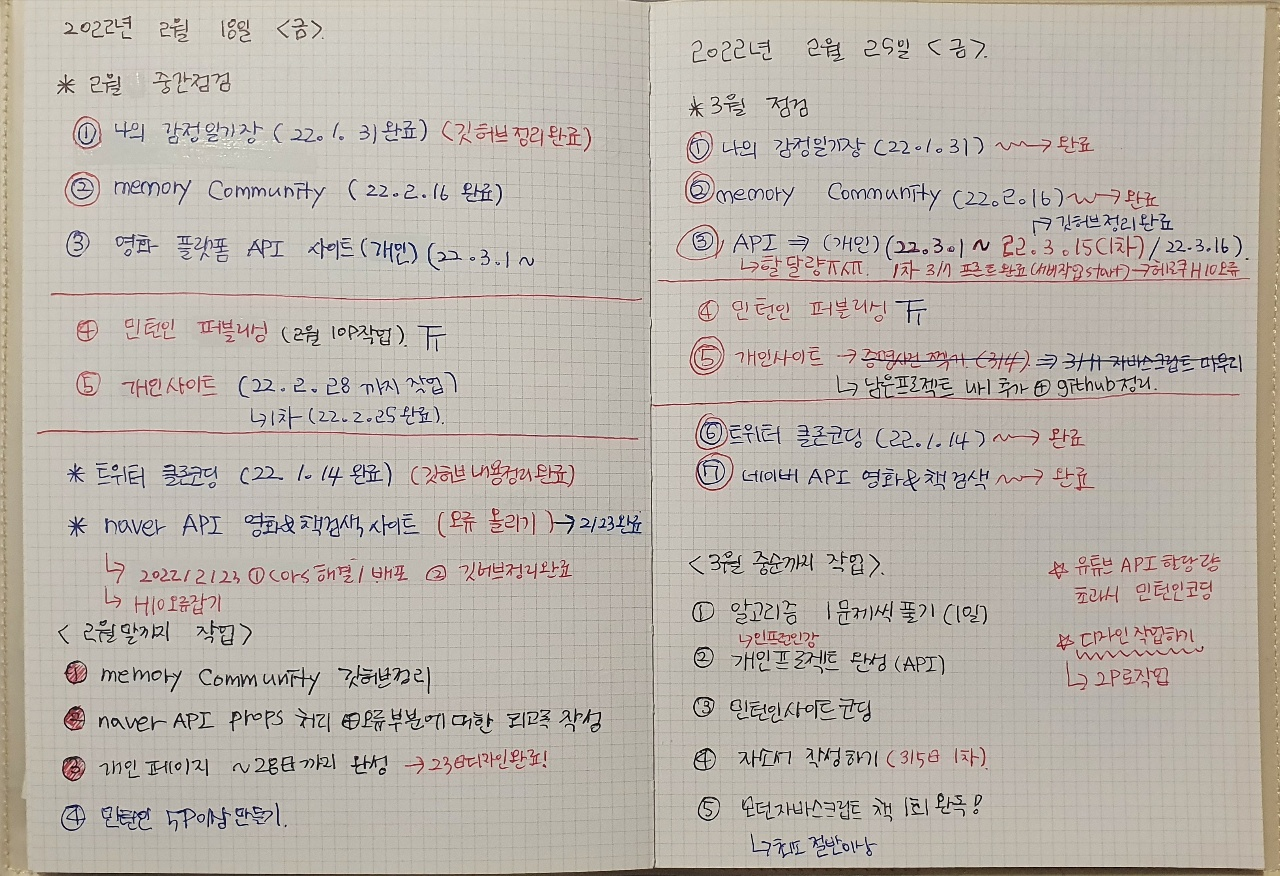 2022년 2월 18일 <금>.
* 2월 중간점검
① 나의 감정일기장 (22.1.31완료) (깃허브정리완료)
② memory Community (22.2.16 완료)
③ 영화 플랫폼 API 사이트(개인) (22.3.1 ~
④ 민턴인 퍼블리싱 (2월 10P작업).
⑤ 개인사이트 (22.2.28까지 작업)
↳1차 (22.2.25완료).
* 트위터 클론코딩 (22.1.14완료) (깃허브내용정리완료)
* naver API 영화&책검색사이트 (오류 올리기) → 2/23완료
↳ 2022/2/23 ① Cors해결/배포 ② 깃허브정리완료
↳ H10오류잡기
< 2월말까지 작업>
① memory Community 깃허브정리
② naver API props 처리 ⊕오류부분에 대한 회고록 작성
③ 개인페이지 ~28日까지 완성 → 23日디자인완료!
④ 민턴인 5P이상만들기.
2022년 2월 25일 <금>.
* 3월 점검
① 나의 감정일기장 (22.1.31) → 완료
② memory Community (22.2.16) → 완료
↱ 깃허브정리완료
③ API ⇒ (개인) (22.3.1 ~ 22.3.15(1차) / 22.3.16).
↳할달량ㅠㅠ. 1차 3/7 프론트완료 (서버작업start) → 헤로쿠H10오류
④ 민턴인 퍼블리싱
⑤ 개인사이트 → 증명사진 찍기 (3/4). ⇒ 3/11 자바스크립트 마무리
↳ 남은프로젝트 내비 추가 ⊕ github정리.
⑥ 트위터 클론코딩 (22.1.14) → 완료
⑦ 네이버 API 영화&책검색 → 완료
<3월 중순까지 작업>.
① 알고리즘 1문제씩 풀기 (1일)
↳인프런인강
② 개인프로젝트 완성 (API)
③ 민턴인사이트코딩
④ 자소서 작성하기 (315日 1차).
⑤ 모던자바스크립트 책 1회 완독!
↳최소 절반이상
☆ 유튜브 API 할당량
초과시 민턴인코딩
☆ 디자인작업하기
↳ 2P로작업